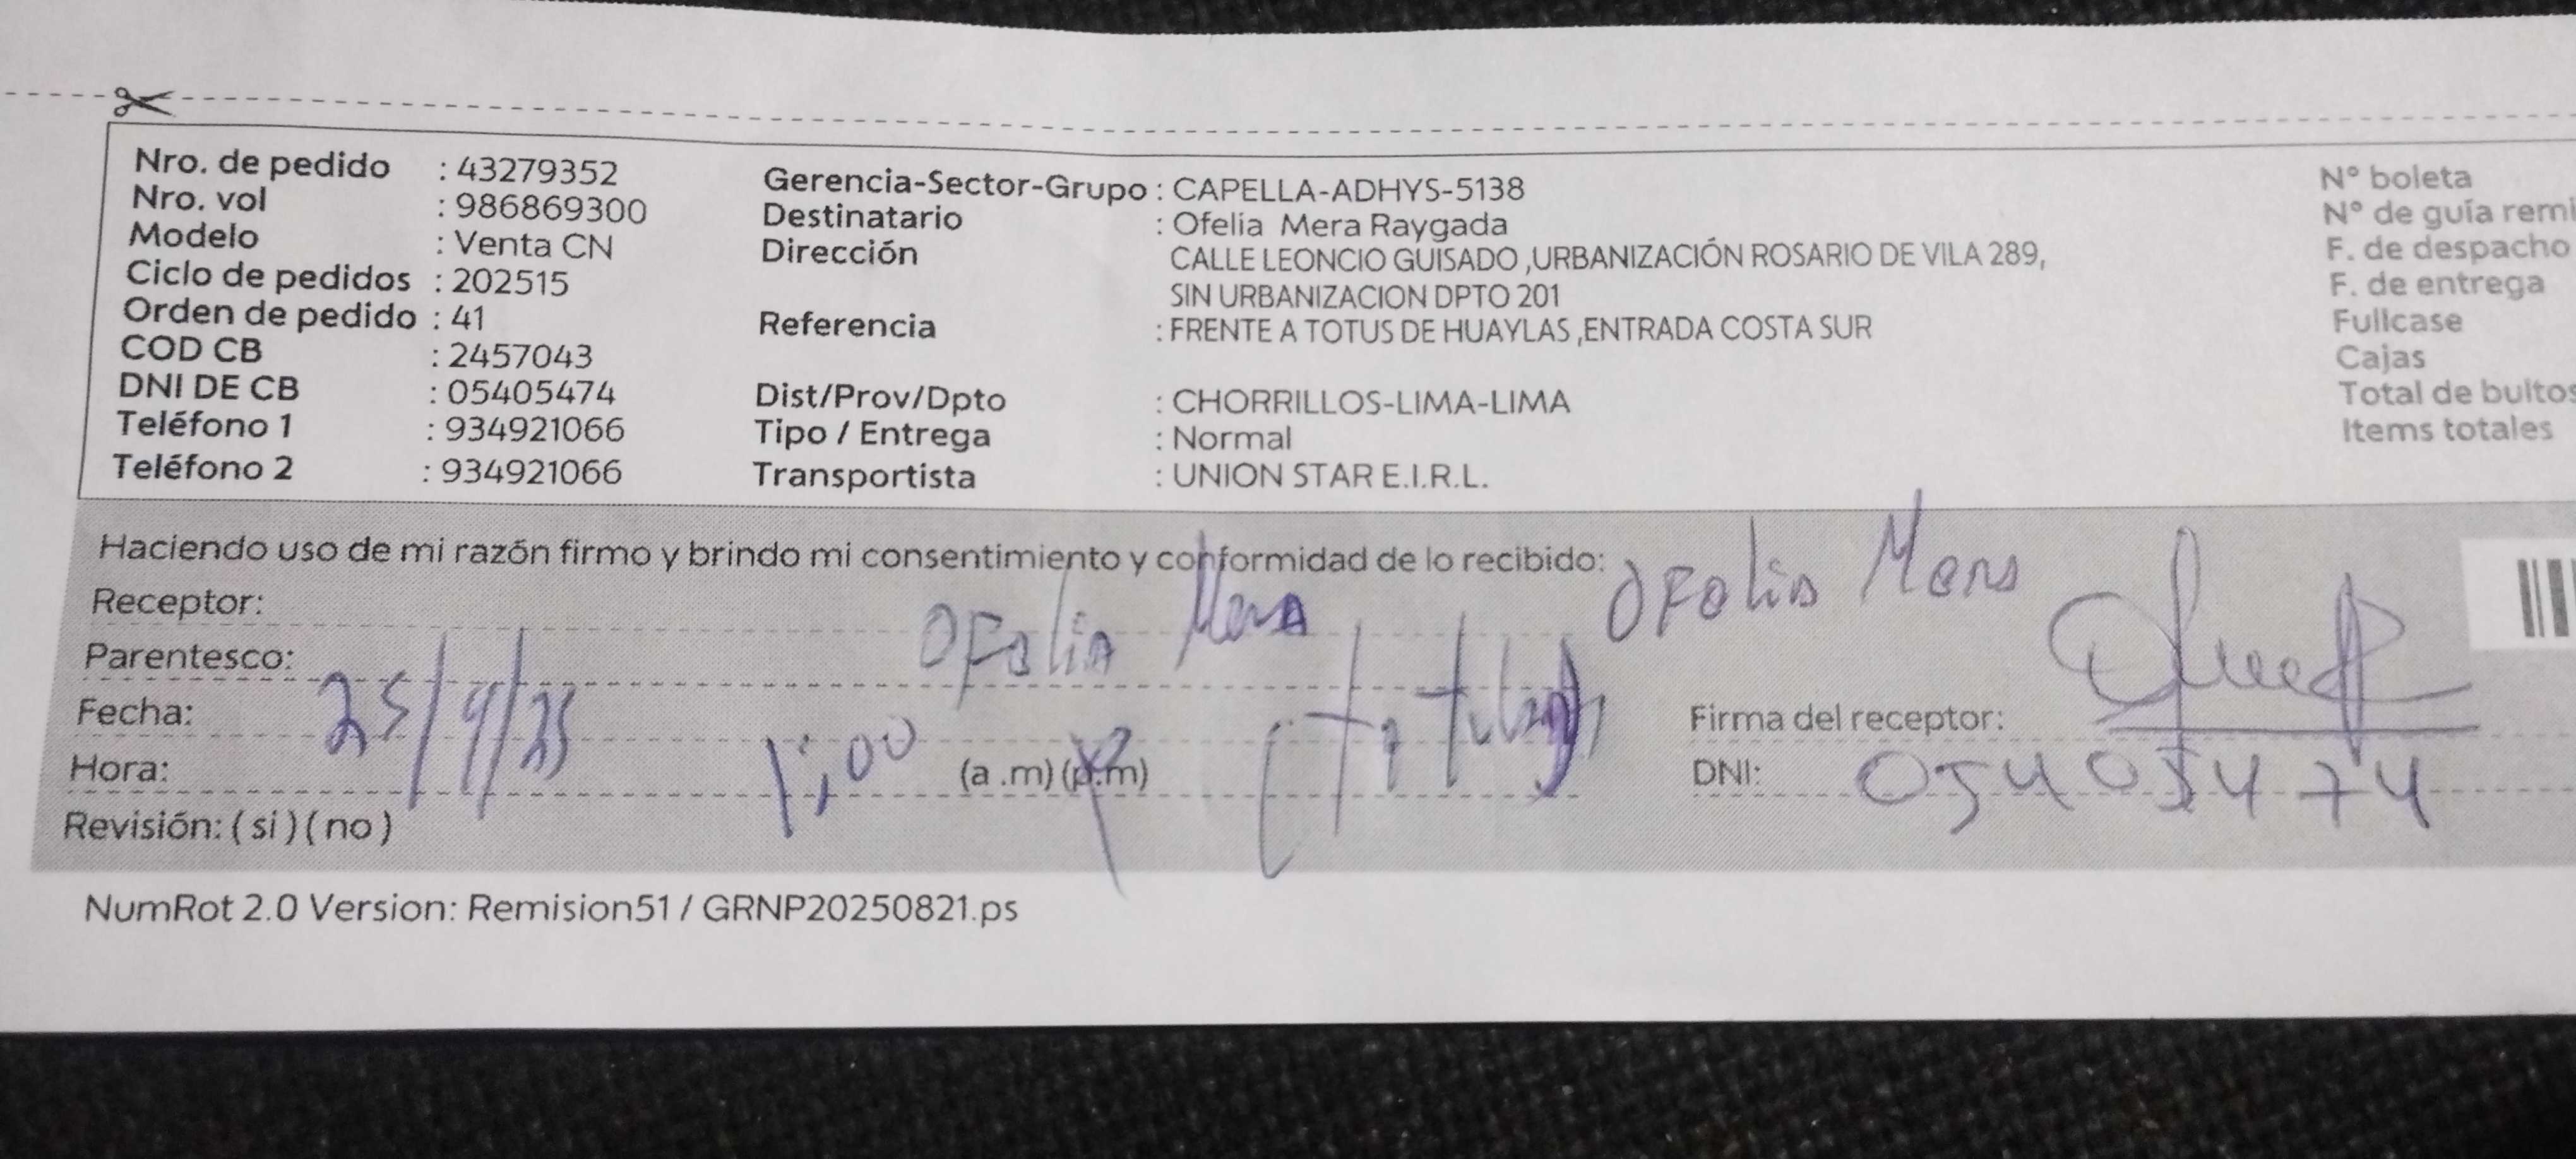 Nro. de pedido : 43279352
Nro. vol : 986869300
Modelo : Venta CN
Ciclo de pedidos : 202515
Orden de pedido : 41
COD CB : 2457043
DNI DE CB : 05405474
Teléfono 1 : 934921066
Teléfono 2 : 934921066
Gerencia-Sector-Grupo : CAPELLA-ADHYS-5138
Destinatario : Ofelia Mera Raygada
Dirección CALLE LEONCIO GUISADO ,URBANIZACIÓN ROSARIO DE VILA 289,
SIN URBANIZACION DPTO 201
Referencia : FRENTE A TOTUS DE HUAYLAS ,ENTRADA COSTA SUR
Dist/Prov/Dpto : CHORRILLOS-LIMA-LIMA
Tipo / Entrega : Normal
Transportista : UNION STAR E.I.R.L.
N° boleta
N° de guía remi
F. de despacho
F. de entrega
Fullcase
Cajas
Total de bultos
Items totales
Haciendo uso de mi razón firmo y brindo mi consentimiento y conformidad de lo recibido:
Receptor: Ofelia Mera
Parentesco: (titular)
Fecha: 25/9/25
Hora: 1:00 (a .m) (p.m)
Revisión: ( si ) ( no )
Ofelia Mera
Firma del receptor:
DNI: 05405474
NumRot 2.0 Version: Remision51 / GRNP20250821.ps